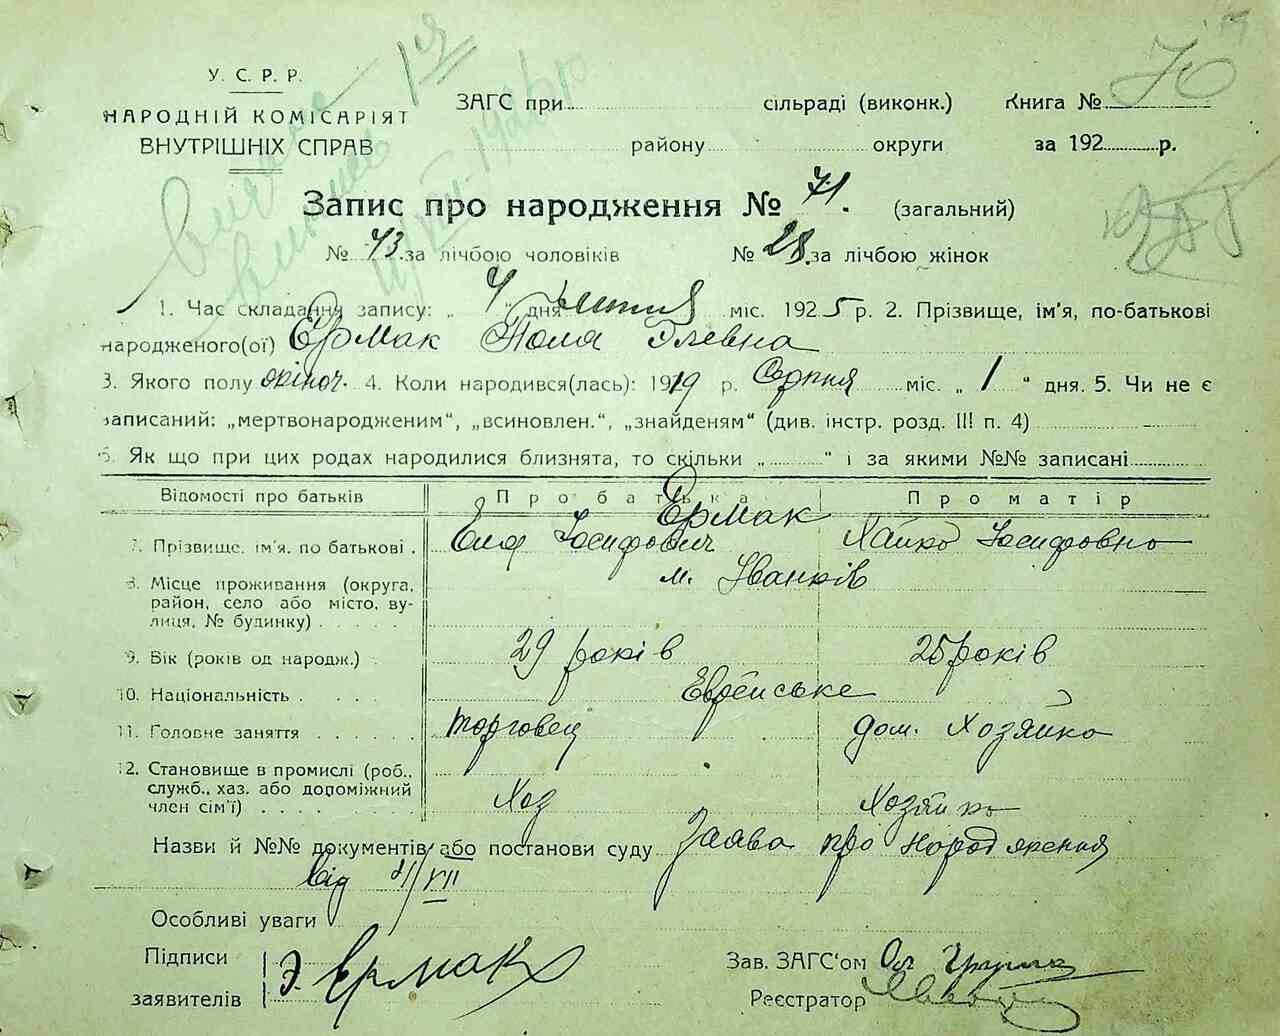 70
У. С. Р. Р.
НАРОДНІЙ КОМІСАРІЯТ
ВНУТРІШНІХ СПРАВ
ЗАГС при сільраді (виконк.) Книга №
району округи за 192 р.
Запис про народження № 71. (загальний)
№ 43. за лічбою чоловіків № 28. за лічбою жінок
1. Час складання запису: „ 4 " дня липня міс. 1925 р. 2. Прізвище, ім'я, по-батькові
народженого(ої) Єрмак Поля Элевна
3. Якого полу жіноч. 4. Коли народився(лась): 1919 р. Серпня міс. „ 1 " дня. 5. Чи не є
записаний: „мертвонародженим", „всиновлен.", „знайденям" (див. інстр. розд. III п. 4)
6. Як що при цих родах народилися близнята, то скільки „ " і за якими №№ записані
Відомості про батьків Про батька Про матір
Єрмак
7. Прізвище, ім'я, по батькові . Иосифович Хайка Иосифовна
8. Місце проживання (округа, район, село або місто, вулиця, № будинку) м. Іванків
9. Вік (років од народж.) 29 років 25 років
10. Національність Еврейське
11. Головне заняття торговец дом. Хозяйка
12. Становище в промислі (роб., служб., хаз. або допоміжний член сім'ї) Хоз Хозяйка
Назви й №№ документів або постанови суду Заява про народження
від VII
Особливі уваги
Підписи
Э. Ермак
заявителів
Зав. ЗАГС'ом
Реєстратор